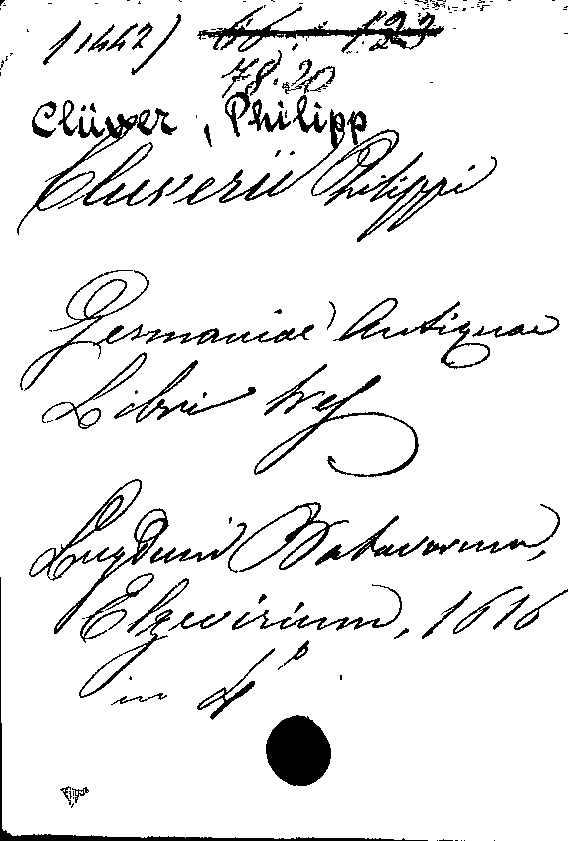 1442) 16. 123
78.20
Clüver, Philipp
Cluverii Philippi
Germaniae Antiquae
Libri tres
Lugduni Batavorum,
Elzevirium, 1616
in 4°.